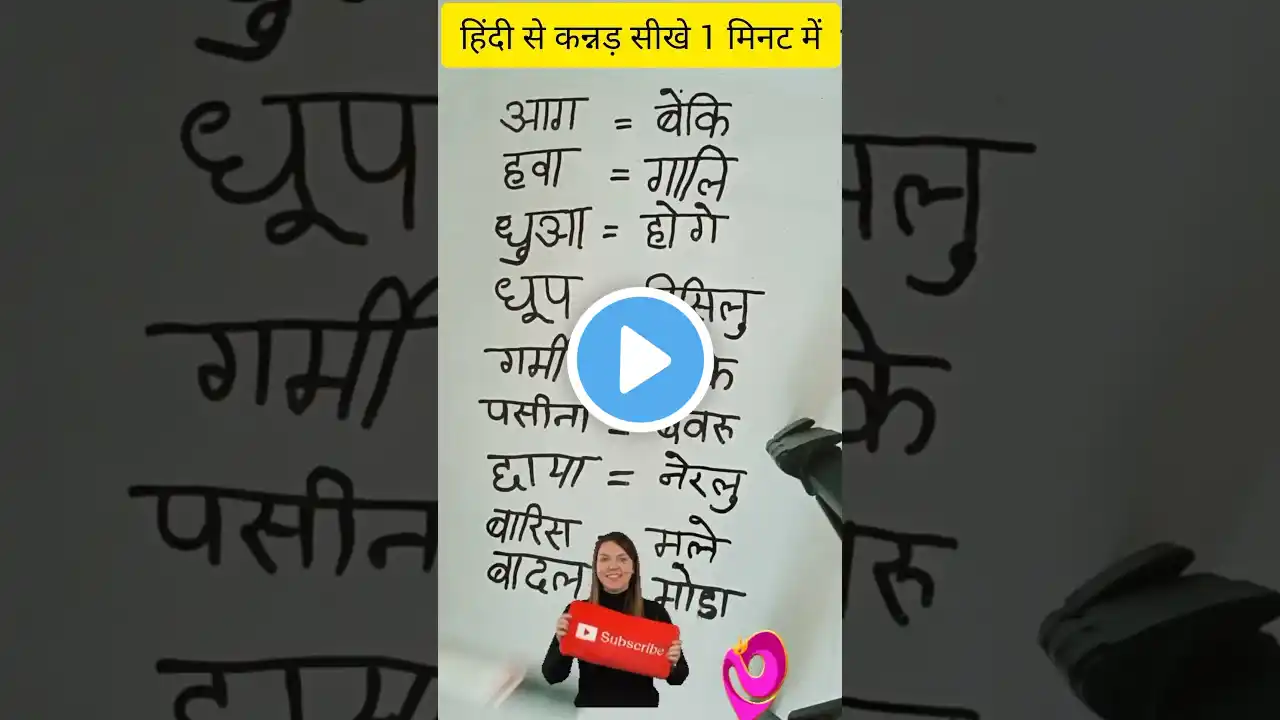 हिंदी से कन्नड़ सीखे 1 मिनट में
आग = बेंकि
हवा = गालि
धुआ = होगे
धूप सिलु
गर्मी के
पसीना = बेवरु
छाया = नेरलु
बारिस मले
बादल मोडा
Subscribe